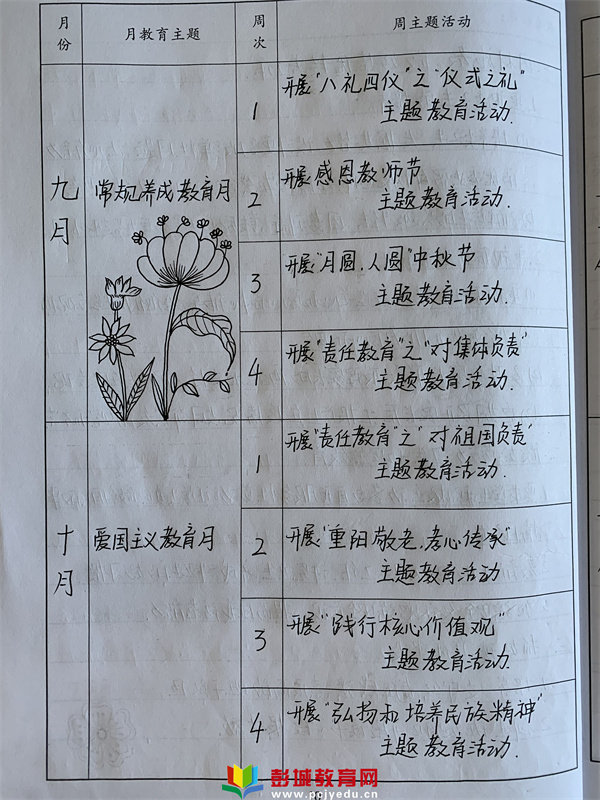 月份 月教育主题 周次 周主题活动
九月 常规养成教育月
1 开展“八礼四仪”之“仪式之礼”
主题教育活动.
2 开展感恩教师节
主题教育活动.
3 开展“月圆,人圆”中秋节
主题教育活动.
4 开展“责任教育”之“对集体负责”
主题教育活动.
十月 爱国主义教育月
1 开展“责任教育”之“对祖国负责”
主题教育活动.
2 开展“重阳敬老,孝心传承”
主题教育活动
3 开展“践行核心价值观”
主题教育活动.
4 开展“弘扬和培养民族精神”
主题教育活动.
彭城教育网
www.pcjyedu.cn